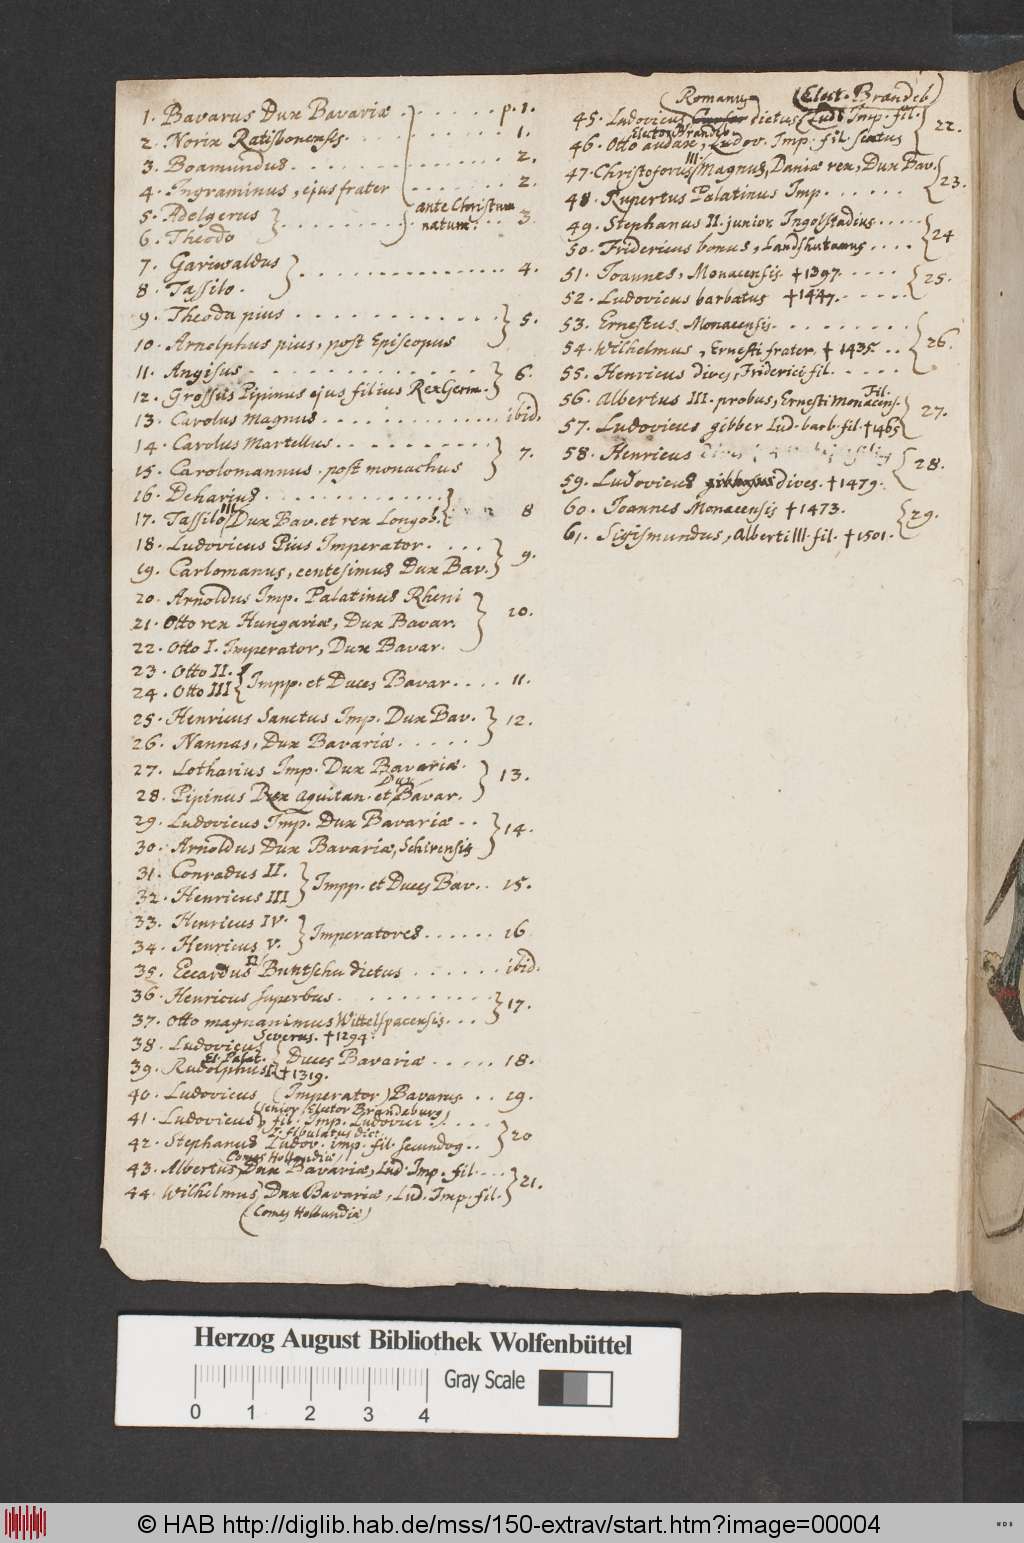 1. Bavarus Dux Bavariæ . . . . . . . p. 1.
2. Norix Ratisbonensis . . . . . . . 1.
3. Boamundus . . . . . . . 2.
4. Ingraminus, ejus frater . . . . . . . 2.
5. Adelgerus
ante Christum natum. . . 3.
6. Theodo
7. Gariwaldus
. . . . . . . 4.
8. Tassilo.
9. Theoda pius . . . . . . . 5.
10. Arnolphus pius, post Episcopus
11. Angisus . . . . . . . 6.
12. Grossus Pipinus ejus filius Rex Germ.
13. Carolus Magnus . . . . . . . ibid.
14. Carolus Martellus . . . . . . . 7.
15. Carolomannus. post monachus
16. Deharius . . . . . . .
17. Tassilo III Dux Bav. et rex Longob. 8
18. Ludovicus Pius Imperator . . . . 9.
19. Carlomanus, centesimus Dux Bav.
20. Arnoldus Imp. Palatinus Rheni
21. Otto rex Hungariæ, Dux Bavar. 10.
22. Otto I. Imperator, Dux Bavar.
23. Otto II.
Impp. et Duces Bavar. . . . 11.
24. Otto III
25. Henricus Sanctus Imp. Dux Bav. 12.
26. Nannas, Dux Bavariæ . . . . .
27. Lotharius Imp. Dux Bavariæ. 13.
28. Pipinus Rex Aquitan. et Dux Bavar.
29. Ludovicus Imp. Dux Bavariæ . . 14.
30. Arnoldus Dux Bavariæ, Schirensis
31. Conradus II.
Impp. et Duces Bav. . 15.
32. Henricus III
33. Henricus IV.
Imperatores . . . . . . 16
34. Henricus V.
35. Eccardus II Buntschu dictus . . . . . . ibid.
36. Henricus superbus . . . . . . . 17.
37. Otto magnanimus Wittelspacensis . . .
38. Ludovicus Severus. †1294.
Duces Bavariæ . . . . . 18.
39. Rudolphus I. El. Palat. †1319.
40. Ludovicus (Imperator) Bavarus . . 19.
41. Ludovicus (senior Elector Brandeburg) fil. Imp. Ludovici . .
42. Stephanus Fibulatus dict. Ludov. imp. fil. secundog . . 20
43. Albertus, Comes Hollandiæ, Dux Bavariæ, Lud. Imp. fil. . . .
44. Wilhelmus, Dux Bavariæ, Lud. Imp. fil. 21.
(Comes Hollandiæ)
45. Ludovicus (Romanus) dictus (Elect. Brandeb) Lud. Imp. fil.
22.
46. Otto audax, Elector Brandeb. Ludov. Imp. fil. sextus
47. Christoforus III Magnus, Daniæ rex, Dux Bav.
23.
48. Rupertus Palatinus Imp. . . . . . .
49. Stephanus II. junior, Ingolstadius . . . . .
24
50. Fridericus bonus, Landshutanus . . . .
51. Joannes, Monacensis †1397. . . . . .
25.
52. Ludovicus barbatus †1447. . . . . . .
53. Ernestus, Monacensis . . . . . . . . .
54. Wilhelmus, Ernesti frater, † 1435. . . 26.
55. Henricus dives, Friderici fil. . . . . .
56. Albertus III. probus, Ernesti Monacens. Fil.
27.
57. Ludovicus gibber Lud. barb. fil. †1465
58. Henricus
28.
59. Ludovicus dives. †1479.
60. Joannes Monacensis †1473.
29.
61. Sigismundus, Alberti III. fil. †1501.
Herzog August Bibliothek Wolfenbüttel
Gray Scale
0 1 2 3 4
© HAB http://diglib.hab.de/mss/150-extrav/start.htm?image=00004